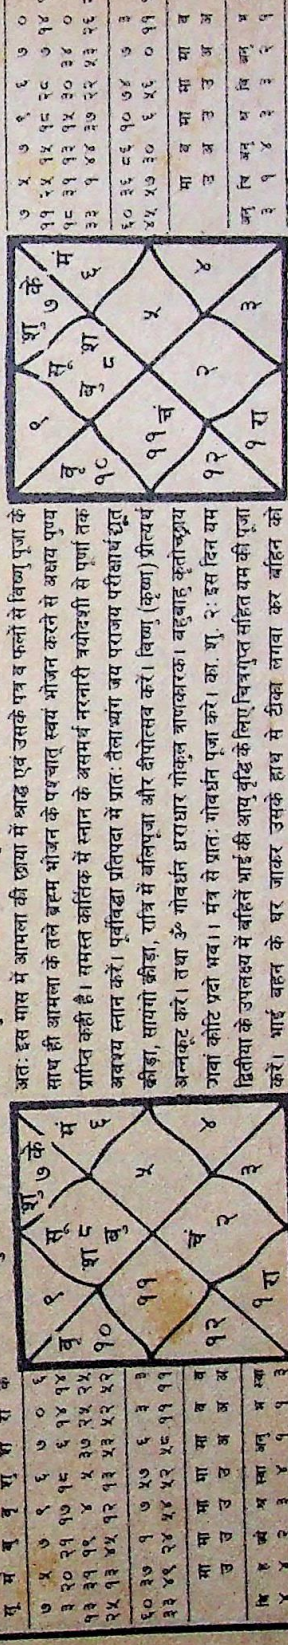 सू मं बु बृ शु श रा के
७ ५ ७ ९ ६ ७ ० ६
३ २० २१ १७ १८ ६ १४ १४
१३ ३१ १९ ४ ५ ३७ २५ २५
२५ १३ ४५ १२ १३ ५३ ५२ ५२
६० ३७ १ ७ ५७ ६ ३ ३
३३ ४९ २४ ५४ ५२ ५८ ११ ११
मा मा मा मा मा व व
उ उ उ उ उ अ अ
बृ
१०
९
सू
श ८
बु
शु
७ के
मं
६
११
५
चं
२
१२
१ रा
३
४
अतः इस मास में आमला की छाया में श्राद्ध एवं उसके पत्र व फलों से विष्णु पूजा के
साथ ही आमला के तले ब्रह्म भोजन के पश्चात् स्वयं भोजन करने से अक्षय पुण्य
प्राप्ति कही है। समस्त कार्तिक में स्नान के असमर्थ नरनारी त्रयोदशी से पूर्णा तक
अवश्य स्नान करें। पूर्वविद्धा प्रतिपदा में प्रातः तैलाभ्यंग जय पराजय परीक्षार्थ द्यूत
क्रीड़ा, सायंगो क्रीड़ा, रात्रि में बलिपूजा और दीपोत्सव करें। विष्णु (कृष्ण) प्रीत्यर्थ
अन्नकूट करे। तथा ॐ गोवर्धन धराधार गोकुल त्राणकारक। बहुबाहु कृतोच्छ्राय
गवां कोटि प्रदो भव।। मंत्र से प्रातः गोवर्धन पूजा करे। का. शु. २: इस दिन यम
द्वितीया के उपलक्ष्य में बहिनें भाई की आयु वृद्धि के लिए चित्रगुप्त सहित यम की पूजा
करें। भाई बहन के घर जाकर उसके हाथ से टीका लगवा कर बहिन को
बृ
१०
९
सू
बु श
८
शु
७ के
मं
६
११ चं
५
२
१२
१ रा
३
४
७ ५ ७ ९ ६ ७ ०
११ २५ १५ १८ २८ ७ १४
१८ ३१ १३ १५ ३० ३४ ०
३३ १ ४४ ३७ २२ ५३ २६
६० ३६ ८६ १० ७४ ७ ३
४५ ५७ ३० ६ ५६ ० ११
मा व मा मा मा व
उ अ उ उ अ अ